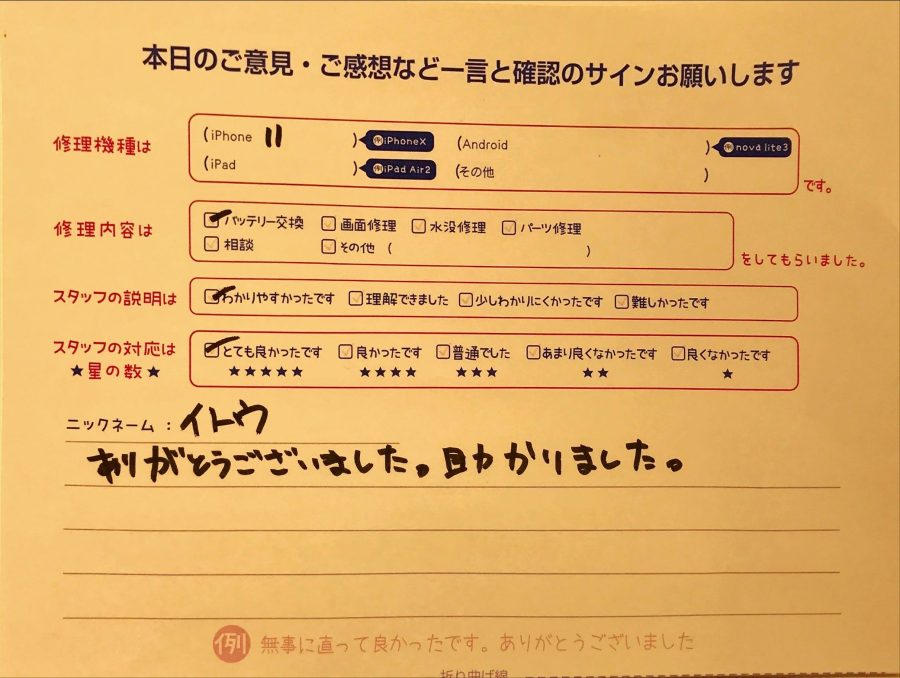 本日のご意見・ご感想など一言と確認のサインお願いします
修理機種は
(iPhone 11 ) 例iPhoneX (Android ) 例nova lite3
(iPad ) 例iPad Air2 (その他 )
です。
修理内容は
バッテリー交換 画面修理 水没修理 パーツ修理
相談 その他 ( )
をしてもらいました。
スタッフの説明は わかりやすかったです 理解できました 少しわかりにくかったです 難しかったです
スタッフの対応は とても良かったです 良かったです 普通でした あまり良くなかったです 良くなかったです
★星の数★ ★★★★★ ★★★★ ★★★ ★★ ★
ニックネーム：イトウ
ありがとうございました。助かりました。
例 無事に直って良かったです。ありがとうございました
折り曲げ線